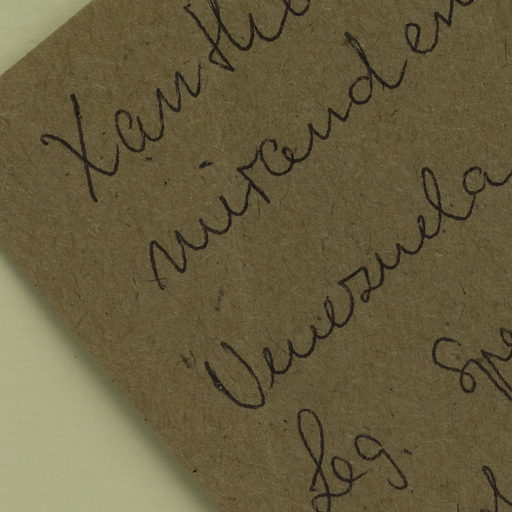 Xanthi
miranden
Venezuela
Spe
Leg.